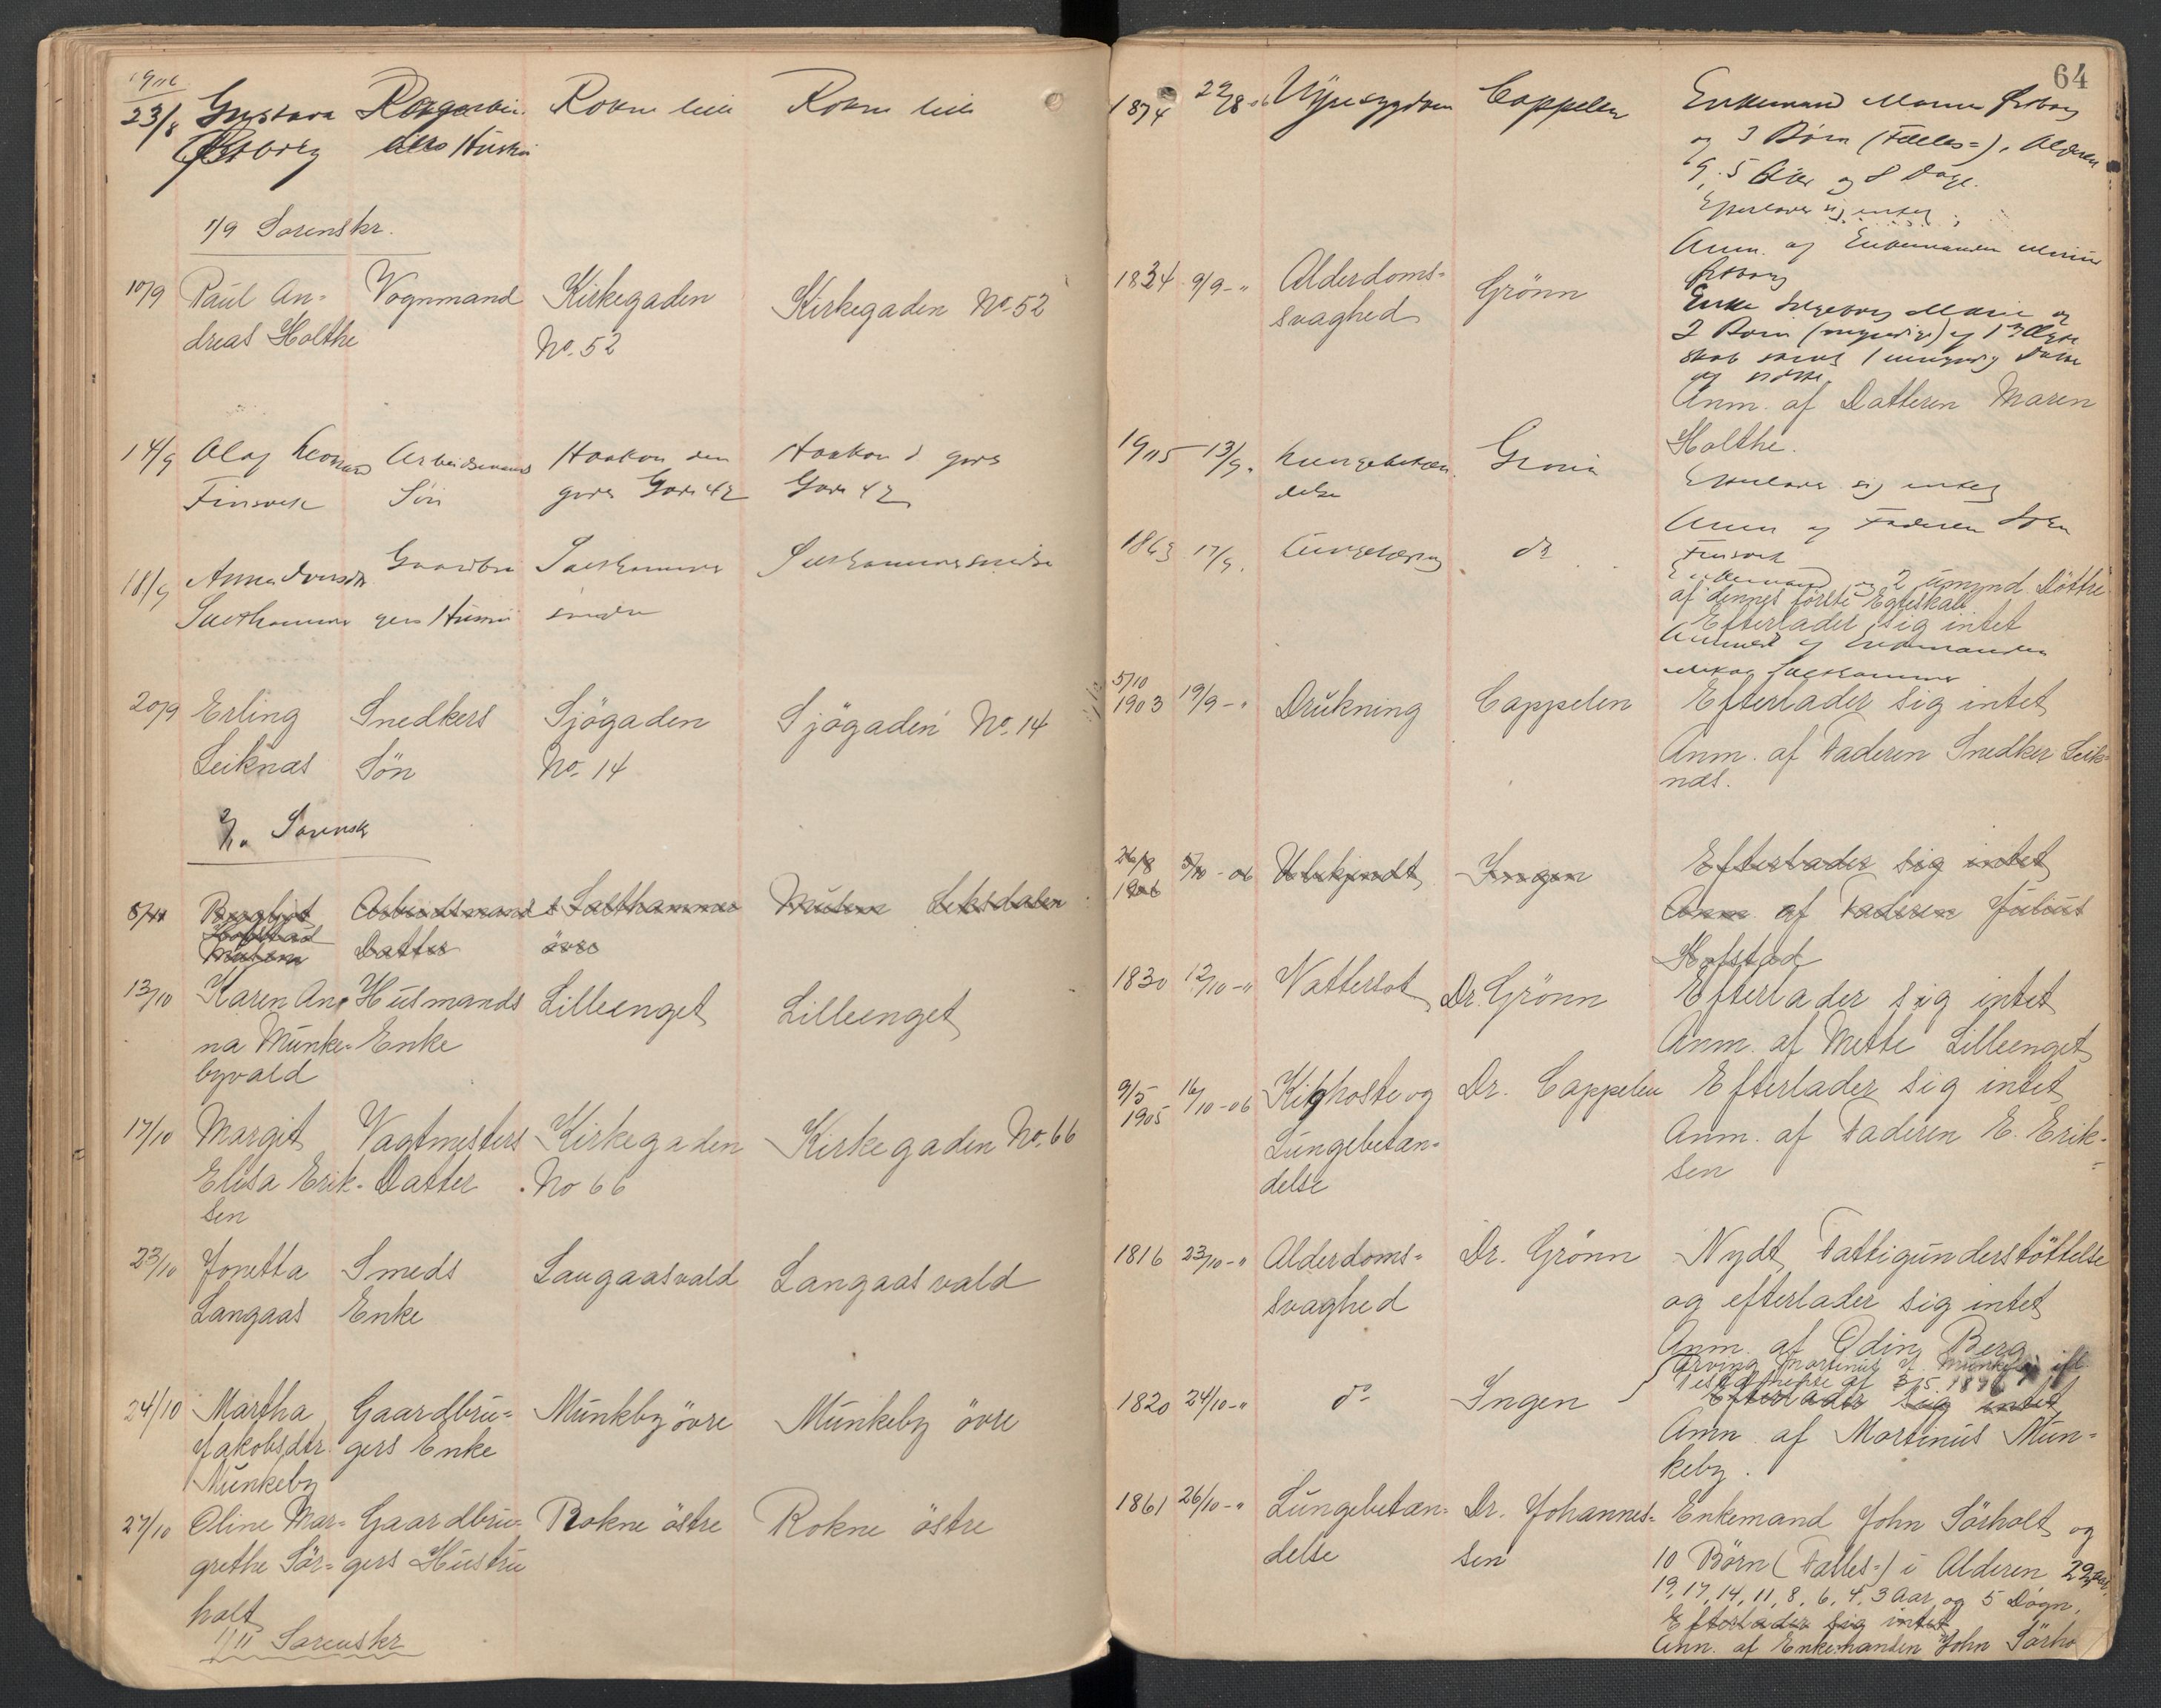 23/8 Gustava
Östborg
Rokne lille
Rokne lille
1/9 Sorenskr.
10/9 Paul An-
dreas Holthe
Vognmand
Kirkegaden
No. 52
Kirkegaden No. 52
14/9 Olaf
Finsvik
Arbeidsmands
Sön
Haakon den
godes Gade 42
Haakon d. godes
Gade 42
18/9 Anna
Salthammer
Gaardbru
gers Hustru
Salthammer
nedre
Salthammer nedre
20/9 Erling
Leiknæs
Snedkers
Sön
Sjögaden
No. 14
Sjögaden No. 14
Sorensk
8/11 Bergljot
Hofstad
Musem
Arbeidsmands
Datter
Salthammer
övre
Musem Leksdalen
13/10 Karen An-
na Munke-
byvald
Husmands
Enke
Lilleenget
Lilleenget
17/10 Margit
Elisa Erik-
sen
Vagtmesters
Datter
Kirkegaden
No 66
Kirkegaden No. 66
23/10 Jonetta
Langaas
Smeds
Enke
Langaasvald
Langaasvald
24/10 Martha
Jakobsdtr.
Munkeby
Gaardbru-
gers Enke
Munkby övre
Munkeby övre
27/10 Oline Mar-
grethe Sör-
holt
Gaardbru-
gers Hustru
Rokne östre
Rokne östre
1/11 Sorenskr
64
1874
Cappelen
Enkemand
og 3 Börn (Fælles-), Alderen
9, 5 Aar og 8 Dage.
Efterlader sig intet
Anm. af Enkemanden
Östborg
1834 9/9-"
Alderdoms-
svaghed
Grönn
Enke Ingeborg Marie og
Anm. af Datteren Maren
Holthe.
1905 13/9
Lungebetæn
delse
Grönn
Efterlader sig intet
Anm af Faderen
Finsvik
1863 17/9.
do
Enkemand og 2 umynd. Döttre
af dennes förste Egteskab
Efterlader sig intet
Anmeldt af Enkemanden
Salthammer
5/10
1903 19/9-"
Drukning
Cappelen
Efterlader sig intet
Anm. af Faderen Snedker Leik-
næs.
26/8
1906
5/10-06
Ubekjendt
Ingen
Efterlader sig intet
Anm af Faderen Julius
Hofstad
1830 12/10-"
Vattersot
Dr. Grönn
Efterlader sig intet
Anm. af Mette Lilleenget
9/5
1905
16/10-06
Kighoste og
Lungebetæn-
delse
Dr. Cappelen
Efterlader sig intet
Anm. af Faderen E. Erik-
sen
1816 23/10-"
Alderdoms-
svaghed
Dr. Grönn
Nydt Fattigunderstöttelse
og efterlader sig intet
Anm. af Odin Berg
1820 24/10-"
do
Ingen
Arving Martinus
Efterlader sig intet
Anm. af Martinus Mun-
keby.
1861 26/10-"
Lungebetæn-
delse
Dr. Johannes-
sen
Enkemand John Sörholt og
10 Börn (Fælles-) i Alderen 22 Aar,
19, 17, 14, 11, 8, 6, 4, 3 Aar og 5 Dögn.
Efterlader sig intet
Anm. af Enkemanden John Sörho